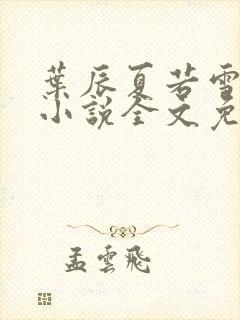 葉辰夏若雪
小說全文免
孟雲飛